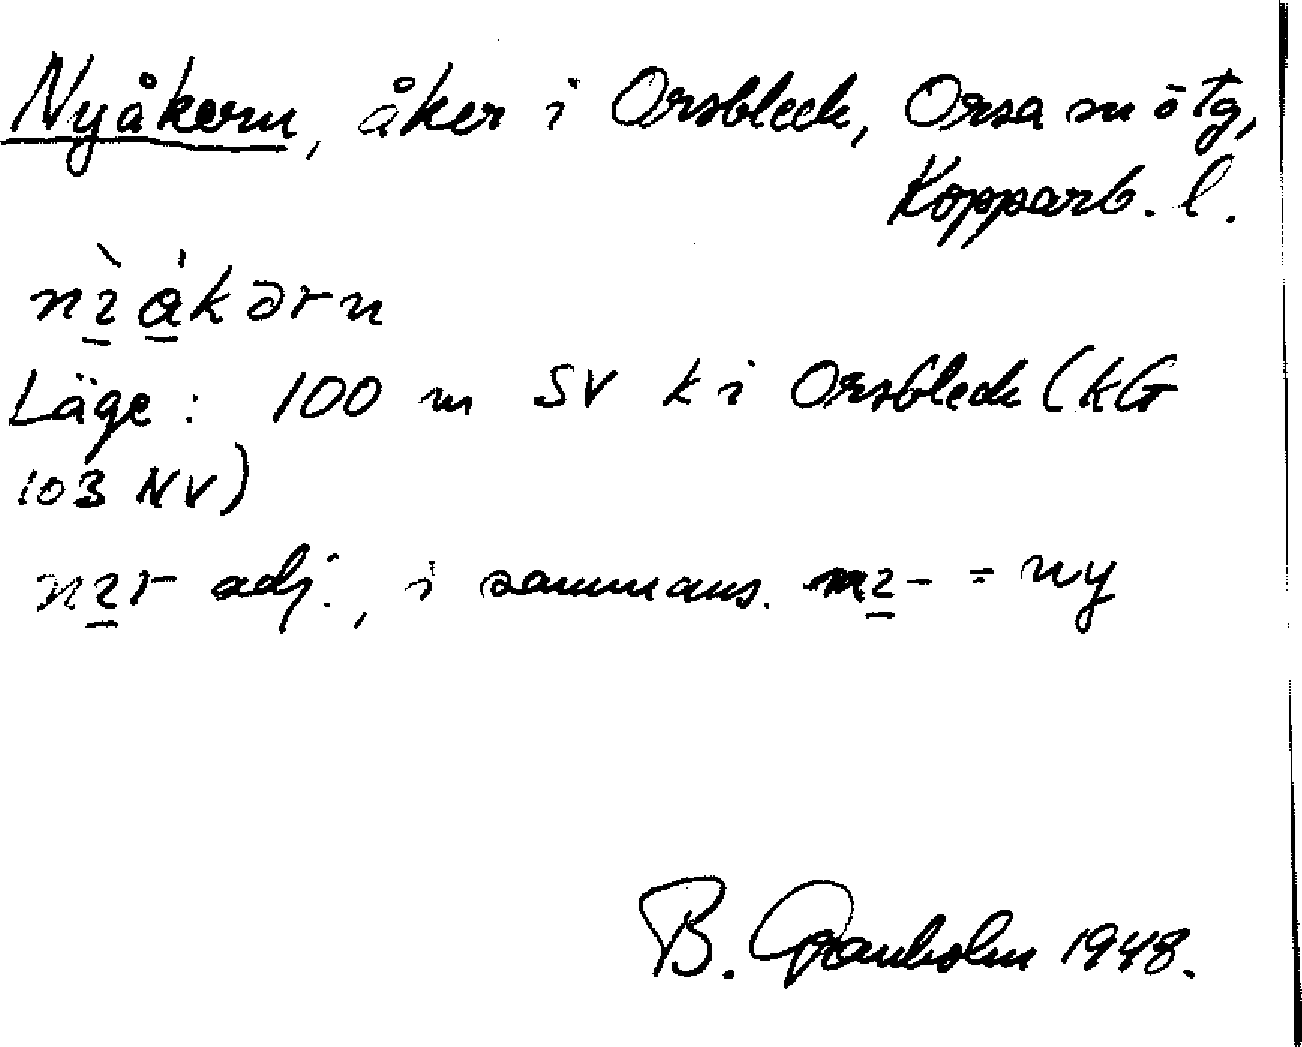 Nyåkern, åker i Orsbleck, Orsa sn ötg,
Kopparb. l.
Läge: 100 m SV k i Orsbleck (kG
103 NV)
adj., i sammans. = ny
B. Granholm 1948.